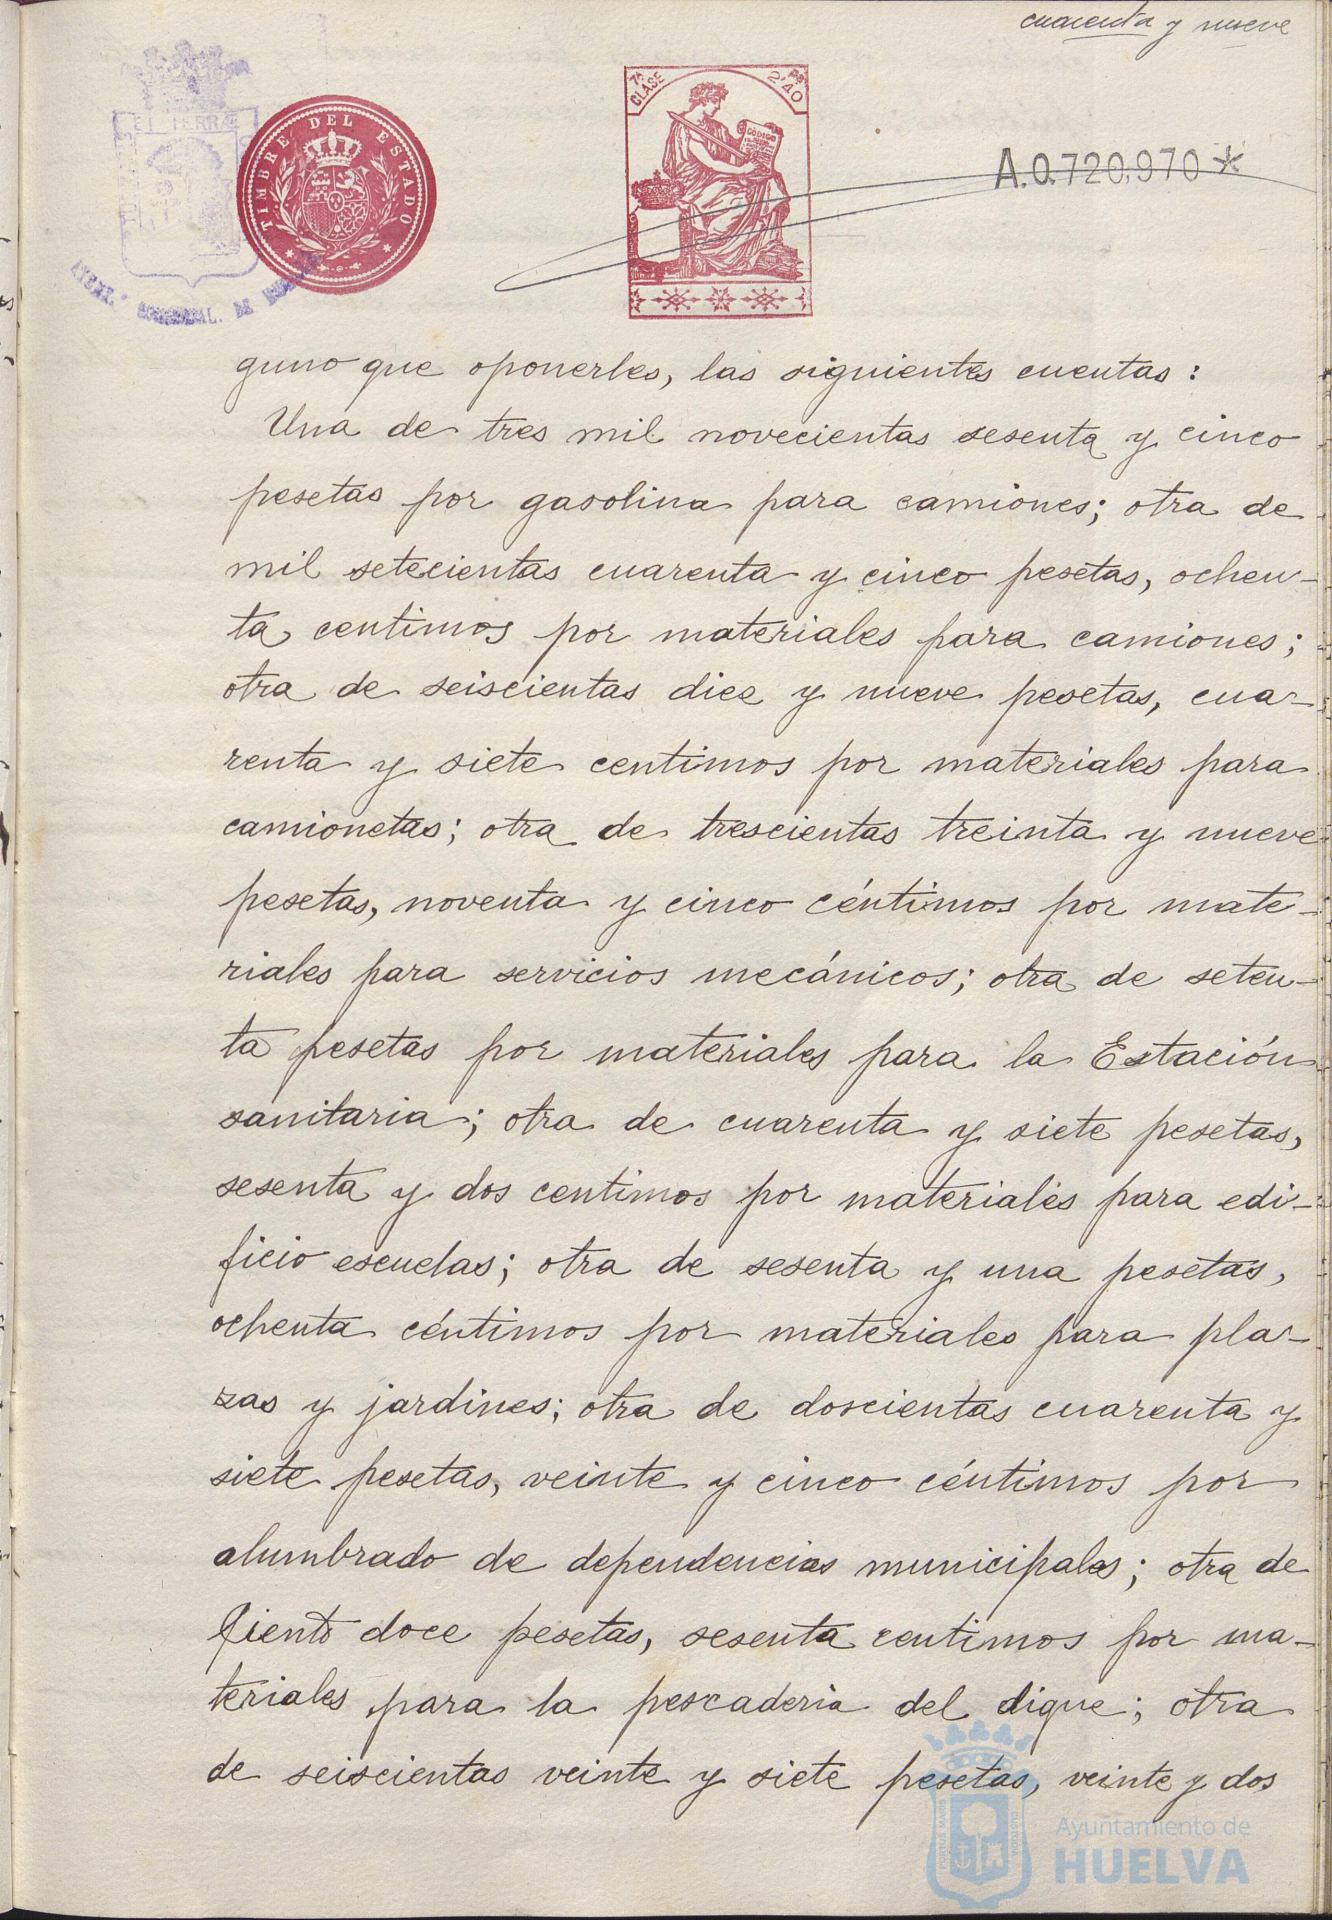 cuarenta y nueve
TIMBRE DEL ESTADO
7ª CLASE
2'40
CÓDIGO
A.0.720,970*
guno que oponerles, las siguientes cuentas:
Una de tres mil novecientas sesenta y cinco
pesetas por gasolina para camiones; otra de
mil setecientas cuarenta y cinco pesetas, ochen-
ta centimos por materiales para camiones;
otra de seiscientas diez y nueve pesetas, cua-
renta y siete centimos por materiales para
camionetas; otra de trescientas treinta y nueve
pesetas, noventa y cinco céntimos por mate-
riales para servicios mecánicos; otra de seten-
ta pesetas por materiales para la Estación
sanitaria; otra de cuarenta y siete pesetas,
sesenta y dos centimos por materiales para edi-
ficio escuelas; otra de sesenta y una pesetas,
ochenta céntimos por materiales para pla-
zas y jardines; otra de doscientas cuarenta y
siete pesetas, veinte y cinco céntimos por
alumbrado de dependencias municipales; otra de
Ciento doce pesetas, sesenta centimos por ma-
teriales para la pescaderia del dique; otra
de seiscientas veinte y siete pesetas, veinte y dos
Ayuntamiento de
HUELVA